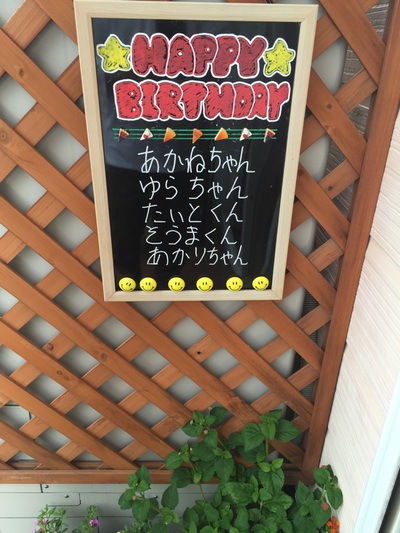 HAPPY
BIRTHDAY
あかねちゃん
ゆらちゃん
たいとくん
そうまくん
あかりちゃん